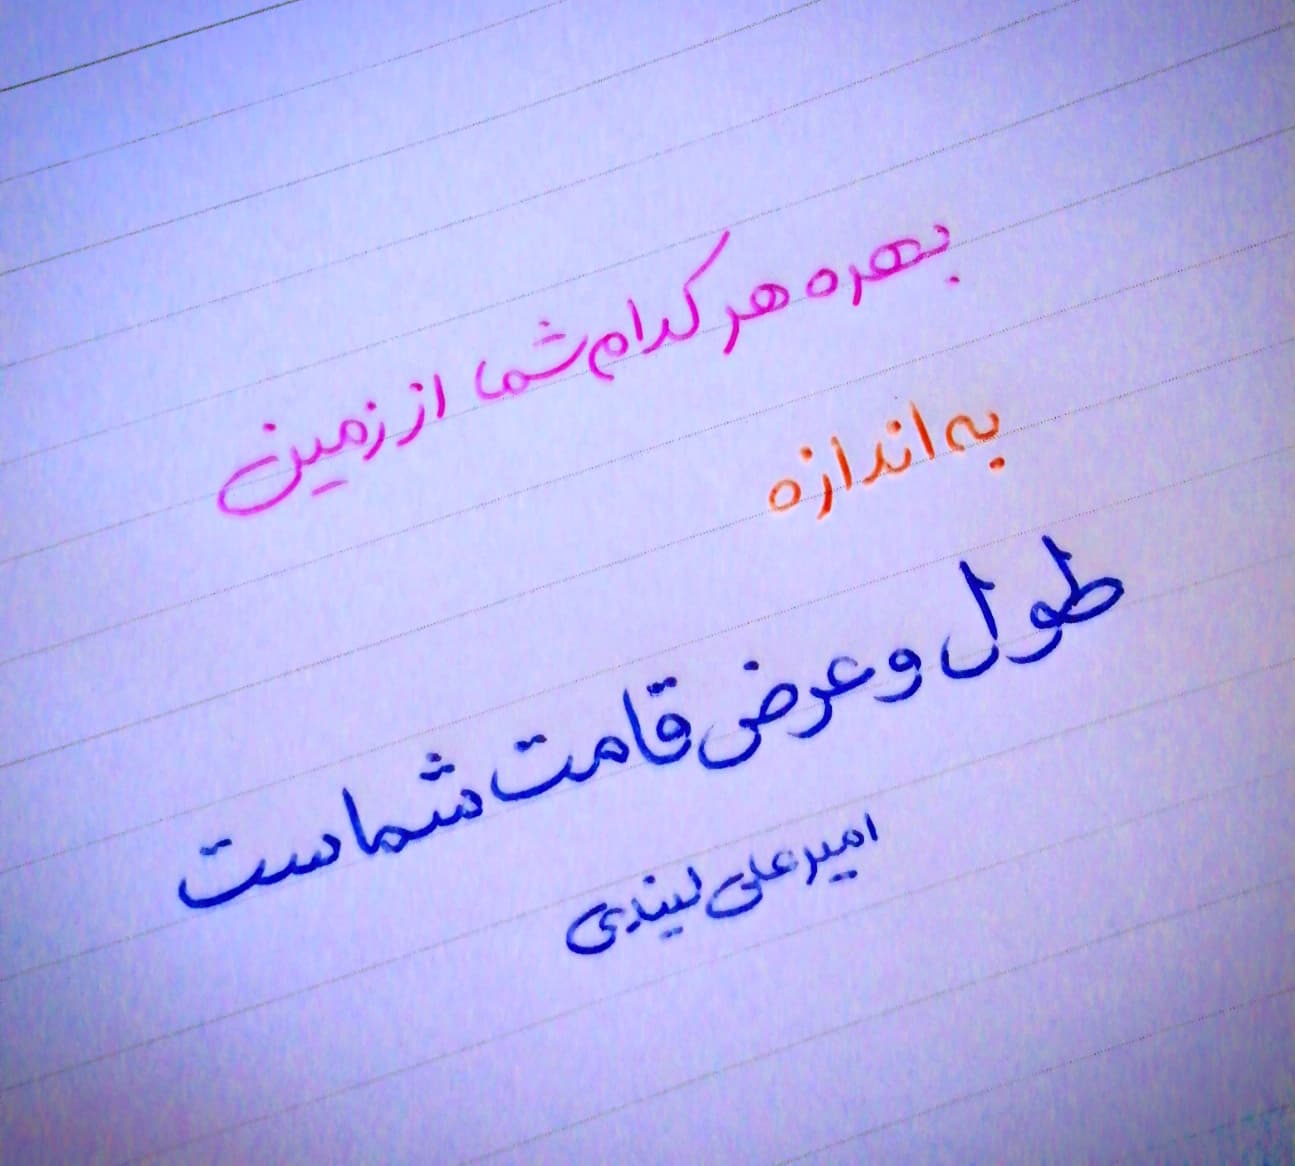 بهره هر کدام شما از زمین
به اندازه
طول و عرض قامت شماست
امیرعلی لیندی